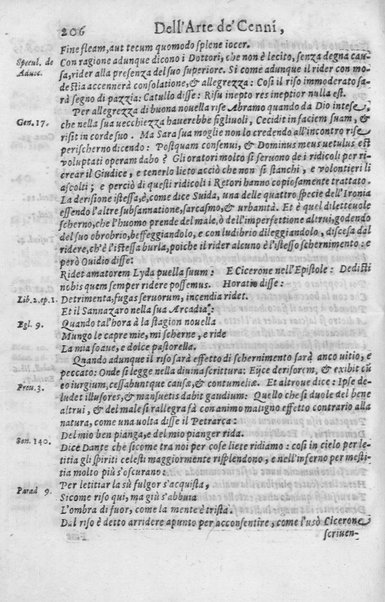 206 Dell'Arte de' Cenni,
Fine fleam, aut tecum quomodo splene iocer.
Specul. de Aduic. Con ragione adunque dicono i Dottori, che non è lecito, senza degna cau-
sa, rider alla presenza del suo superiore. Si come adunque il rider con mo-
destia accennerà consolatione, & allegrezza: Così il riso immoderato sa-
rà segno di pazzia: Catullo disse: Risu inepto res ineptior nulla est.
Per allegrezza di buona nouella rise Abramo quando da Dio intese,
Gen. 17. che nella sua vecchiezza hauerebbe figliuoli, Cecidit in faciem suam, &
risit in corde suo. Ma Sara sua moglie non lo credendo all'incontro rise
per ischerno dicendo: Postquam consenui, & Dominus meus vetulus est
voluptati operam dabo? Gli oratori molto si seruono de i ridicoli per ri-
crear il Giudice, & tenerlo lieto acciò che non si stanchi, e volontieri li
ascolti; e perciò di questi ridicoli i Retori hanno copiosamente trattato.
La derisione istessa, è, come dice Suida, una delle quattro specie dell'Ironia
essendo l'altre subsannatione, sarcasmo, & urbanità. Et è quel diletteuole
scherno, che l'huomo prende del male, ò dell'imperfettione altrui, godendo
del suo obrobrio, beffeggiandolo, e con ludibrio dileggiandolo, discesa dal
ridere, ch'è l'istessa burla, poiche il rider alcuno è l'istesso schernimento: e
però Ouidio disse:
Ridet amatorem Lyda puella suum: E Cicerone nell'Epistole: Dedisti
nobis quem semper ridere possemus. Horatio disse:
Lib. 2. ep. 1. Detrimenta, fugas seruorum, incendia ridet.
Et il Sannazaro nella sua Arcadia:
Egl. 9. Quando tal'hora à la stagion nouella
Mungo le capre mie, mi scherne, e ride
La mia soaue, e dolce pastorella.
Quando adunque il riso sarà effetto di schernimento sarà anco uitio, e
peccato: Onde si legge nella diuina scrittura: Eijce derisorem, & exibit cũ
Prou. 3. eo iurgium, cessabuntque causæ, & contumeliæ. Et altroue dice: Ipse de-
ludet illusores, & mansuetis dabit gaudium: Quello che si duole del bene
altrui, & del male si rallegra fà con animo maligno effetto contrario alla
natura, come una uolta disse il Petrarca:
Son. 140. Del mio ben pianga, e del mio pianger rida.
Dice Dante che sicome tra noi per cose liete ridiamo: così in cielo per le-
titia gli spiriti celesti maggiormente risplendono, e nell'inferno per mesti-
tia molto più s'oscurano:
Parad 9. Per letitiar là sù fulgor s'acquista,
Sicome riso quì, ma giù s'abbuia
L'ombra di fuor, come la mente è trista.
Dal riso è detto arridere apunto per acconsentire, come l'usò Cicerone
scriuen-